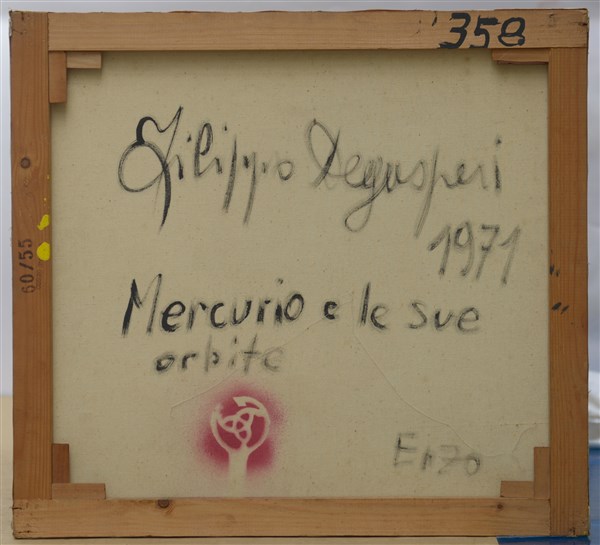 358
Filippo Degasperi
1971
60/55
Mercurio e le sue
orbite
Enzo